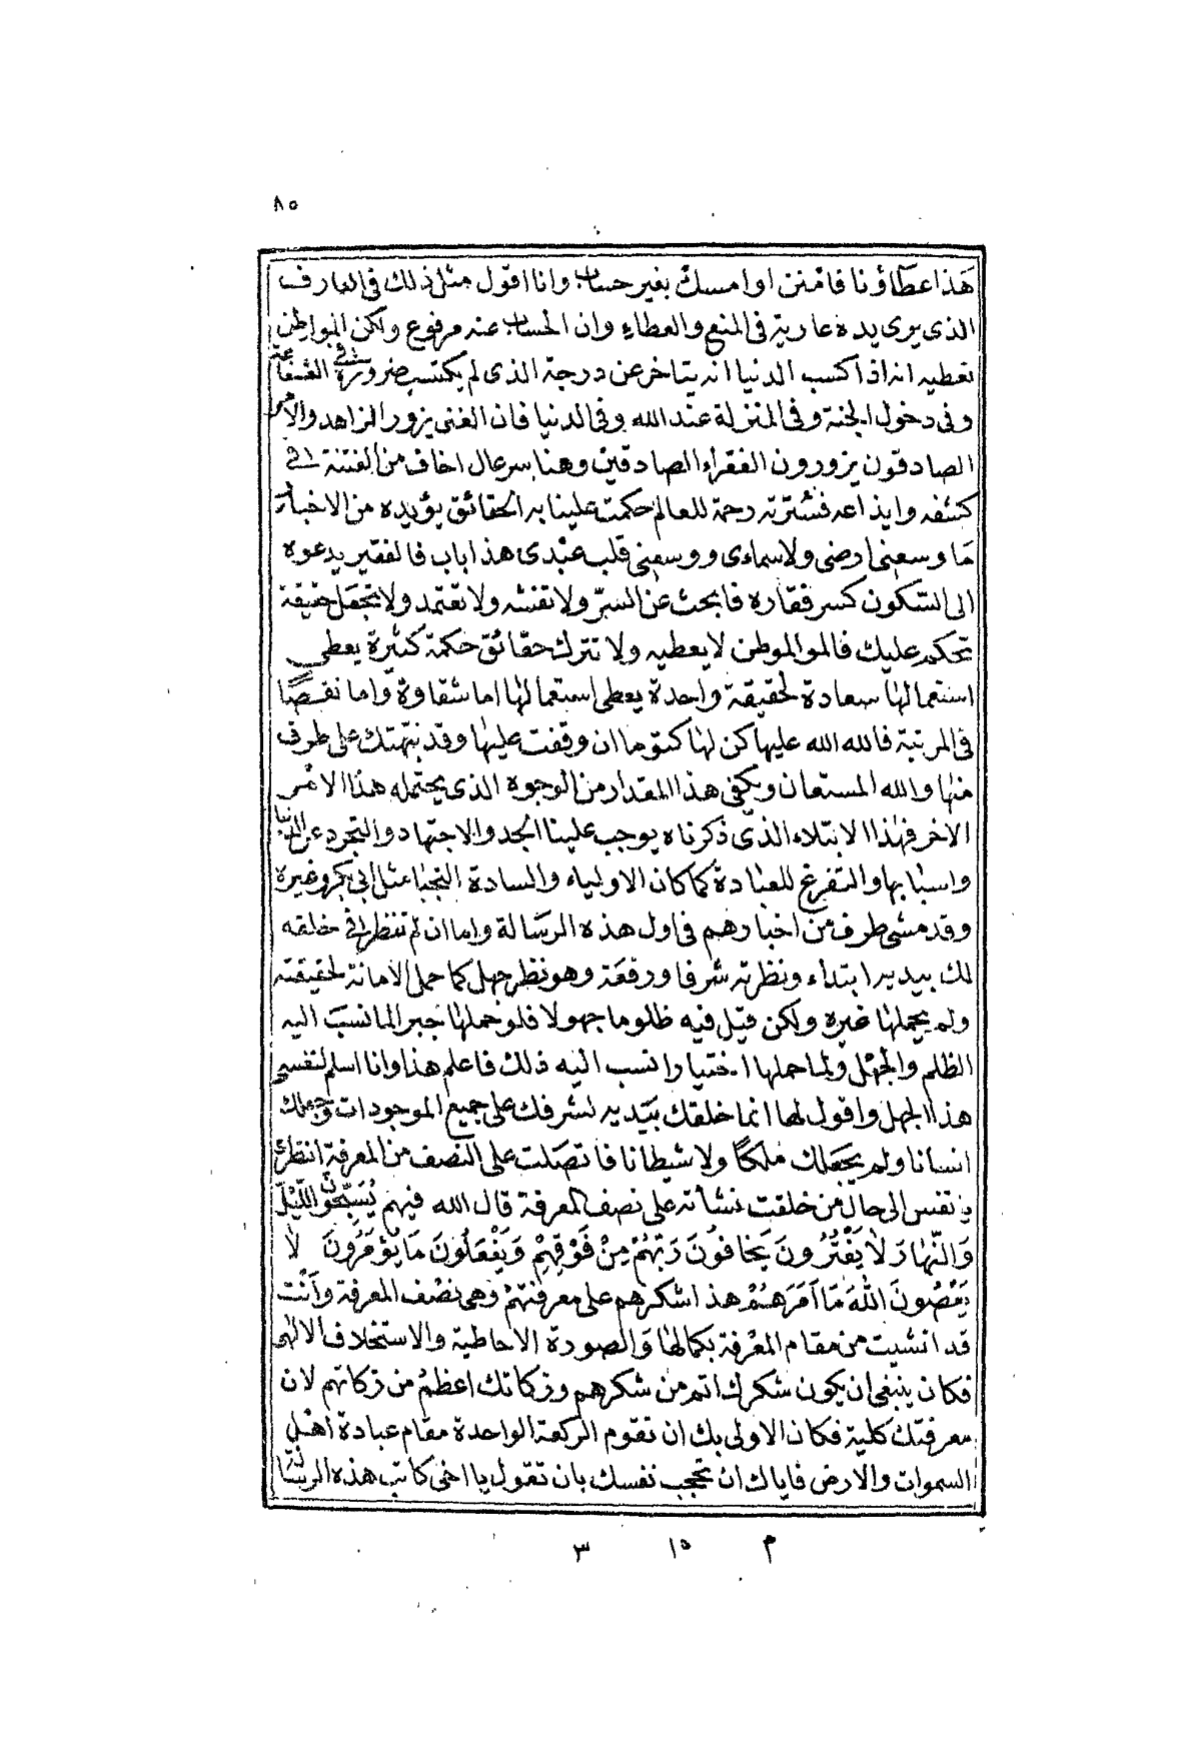 ٨٥
هذا عطاؤنا فامنن او امسك بغير حساب وانا اقول مثل ذلك فى العارف
الذى يرى يده عارية فى المنع والعطاء وان الحساب عنه مرفوع ولكن المواطن
تعطيه انه اذا كسب الدنيا انه يتاخر عن درجة الذى لم يكتسب ضرورة فى الشفاعة
وفى دخول الجنة وفى المنزلة عند الله وفى الدنيا فان الغنى يزور الزاهد والامراء
الصادقون يزورون الفقراء الصادقين وهنا سر عال اخاف من الفتنة فى
كشفه وايذاعه فسترته رحمة للعالم حكمت علينا به الحقائق يؤيده من الاخبار
ما وسعنى ارضى ولا سماءى ووسعنى قلب عبدى هذا باب فالفقير يدعوه
الى السكون كسر فقاره فابحث عن السر ولا تفشه ولا تعتمد ولا تجعل حقيقة
تحكم عليك فالموالموطن لا يعطيه ولا تترك حقائق حكمة كثيرة يعطى
استعمالها سعادة لحقيقة واحدة يعطى استعمالها اما شقاوة واما نقصا
فى المرتبة فالله الله عليها كن لها كتوما ان وقفت عليها وقد نبهتك على طرف
منها والله المستعان ويكفى هذا المقدار من الوجوه الذى يحتمله هذا الامر
الاخر فهذا الابتلاء الذى ذكرناه يوجب علينا الجد والاجتهاد والتجرد عن الدنيا
واسبابها والتفرغ للعبادة كما كان الاولياء والسادة النجبا مثل ابى بكر وغيره
وقد مشى طرف من اخبارهم فى اول هذه الرسالة واما ان لم تنظر فى خلقه
لك بيديه ابتداء ونظرته شرفا ورفعة وهو نظر جهل كما حمل الامانة لحقيقته
ولم يحملها غيره ولكن قيل فيه ظلوما جهولا فلو حملها جبرا لما نسب اليه
الظلم والجهل ولما حملها اختيارا نسب اليه ذلك فاعلم هذا وانا اسلم لنفسى
هذا الجهل واقول لها انما خلقك بيديه لشرفك على جميع الموجودات وجعلك
انسانا ولم يجعلك ملكا ولا شيطانا فاتصلت على النصف من المعرفة انظرى
يا نفس الى حال من خلقت نشاته على نصف المعرفة قال الله فيهم يُسَبِّحُونَ اللَّيْلَ
وَالنَّهَارَ لَا يَفْتُرُونَ يَخَافُونَ رَبَّهُمْ مِنْ فَوْقِهِمْ وَيَفْعَلُونَ مَا يُؤْمَرُونَ لَا
يَعْصُونَ اللهَ مَا اَمَرَهُمْ هذا شكرهم على معرفتهم وهى نصف المعرفة وانت
قد انشيت من مقام المعرفة بكمالها والصورة الاحاطية والاستخلاف الالهى
فكان ينبغى ان يكون شكرك اتم من شكرهم وزكاتك اعظم من زكاتهم لان
معرفتك كلية فكان الاولى بك ان تقوم الركعة الواحدة مقام عبادة اهل
السموات والارض فاياك ان تحجب نفسك بان تقول يا اخى كاتب هذه الرسالة
م ١٥ ٣